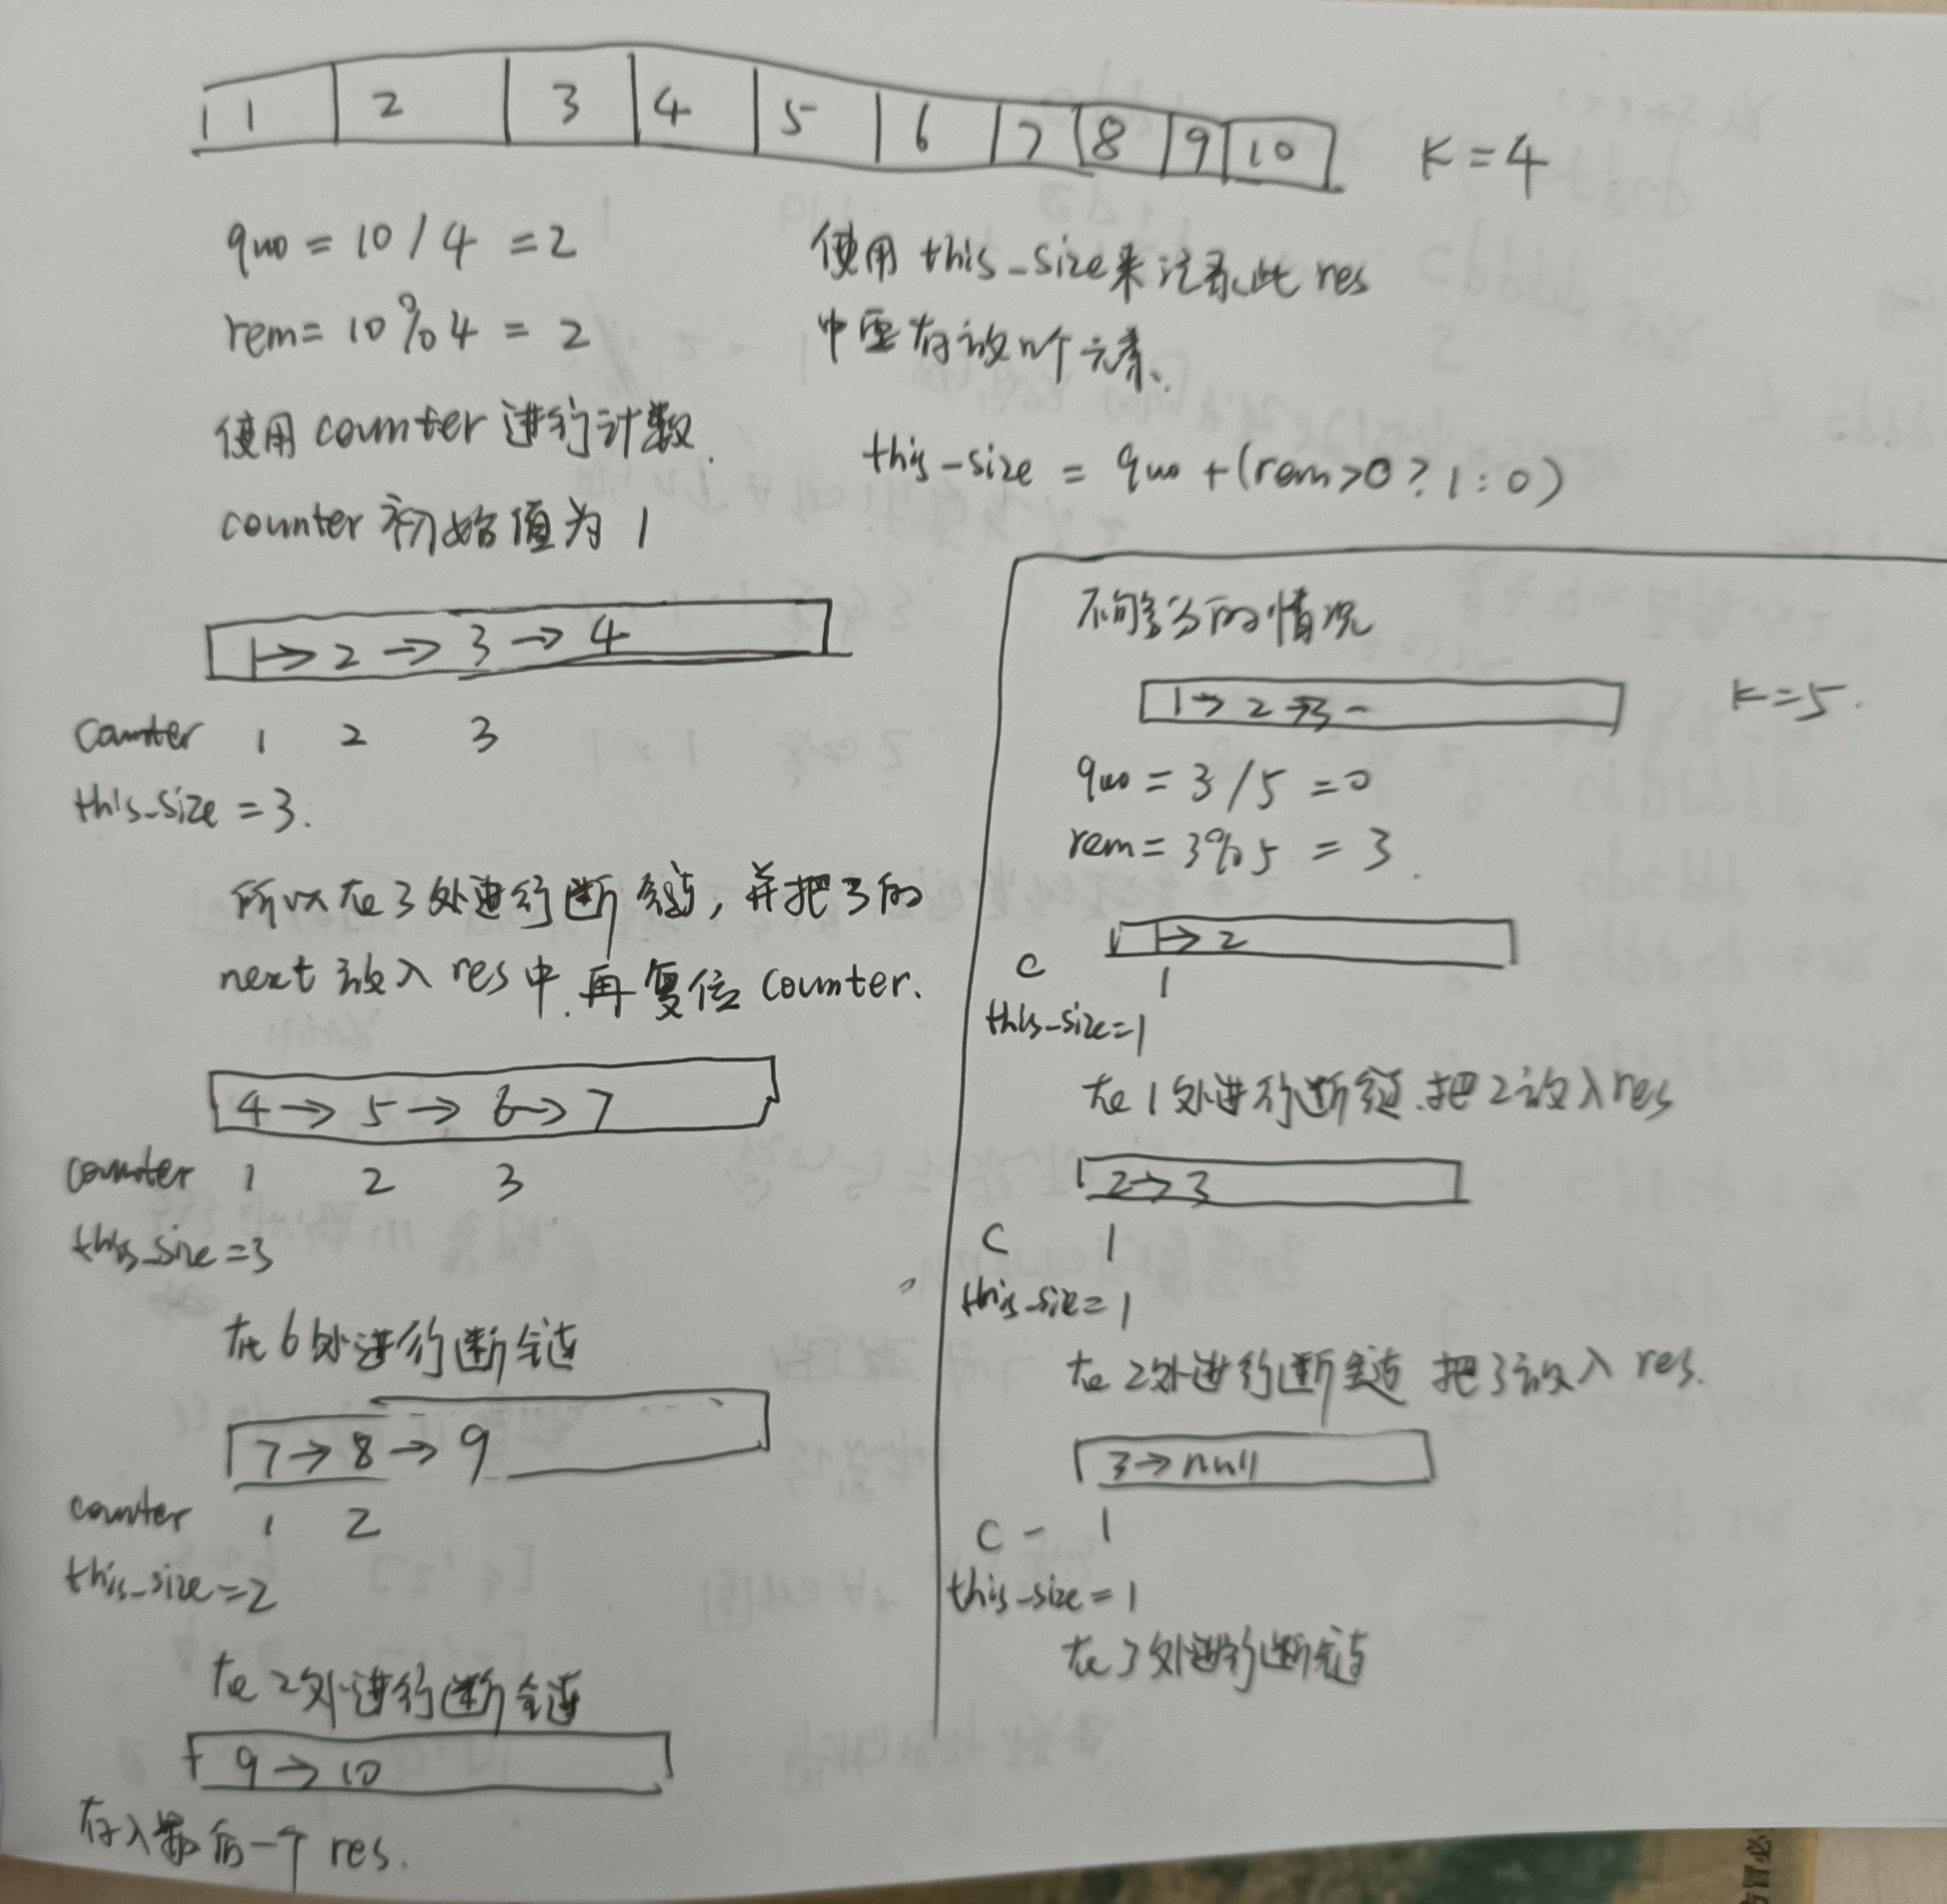 1 2 3 4 5 6 7 8 9 10 K=4
quo = 10 / 4 = 2
rem = 10 % 4 = 2
使用 counter 进行计数.
counter 初始值为 1
使用 this_size来记录此 res
中要存放n个元素、
this_size = quo + (rem>0 ? 1 : 0)
1→ 2 → 3 → 4
counter 1 2 3
this_size = 3.
所以在3处进行断链, 并把3的
next 放入 res 中. 再复位 counter.
4 → 5 → 6 → 7
counter 1 2 3
this_size = 3
在6处进行断链
7 → 8 → 9
counter 1 2
this_size = 2
在2处进行断链
9 → 10
存入最后一个 res.
不够分的情况
1→ 2 →3 - K=5.
quo = 3 / 5 = 0
rem = 3%5 = 3.
1→ 2
c 1
this_size=1
在1处进行断链.把2放入res
2→3
C 1
this_size= 1
在2处进行断链 把3放入 res.
3→null
C - 1
this_size = 1
在3处进行断链